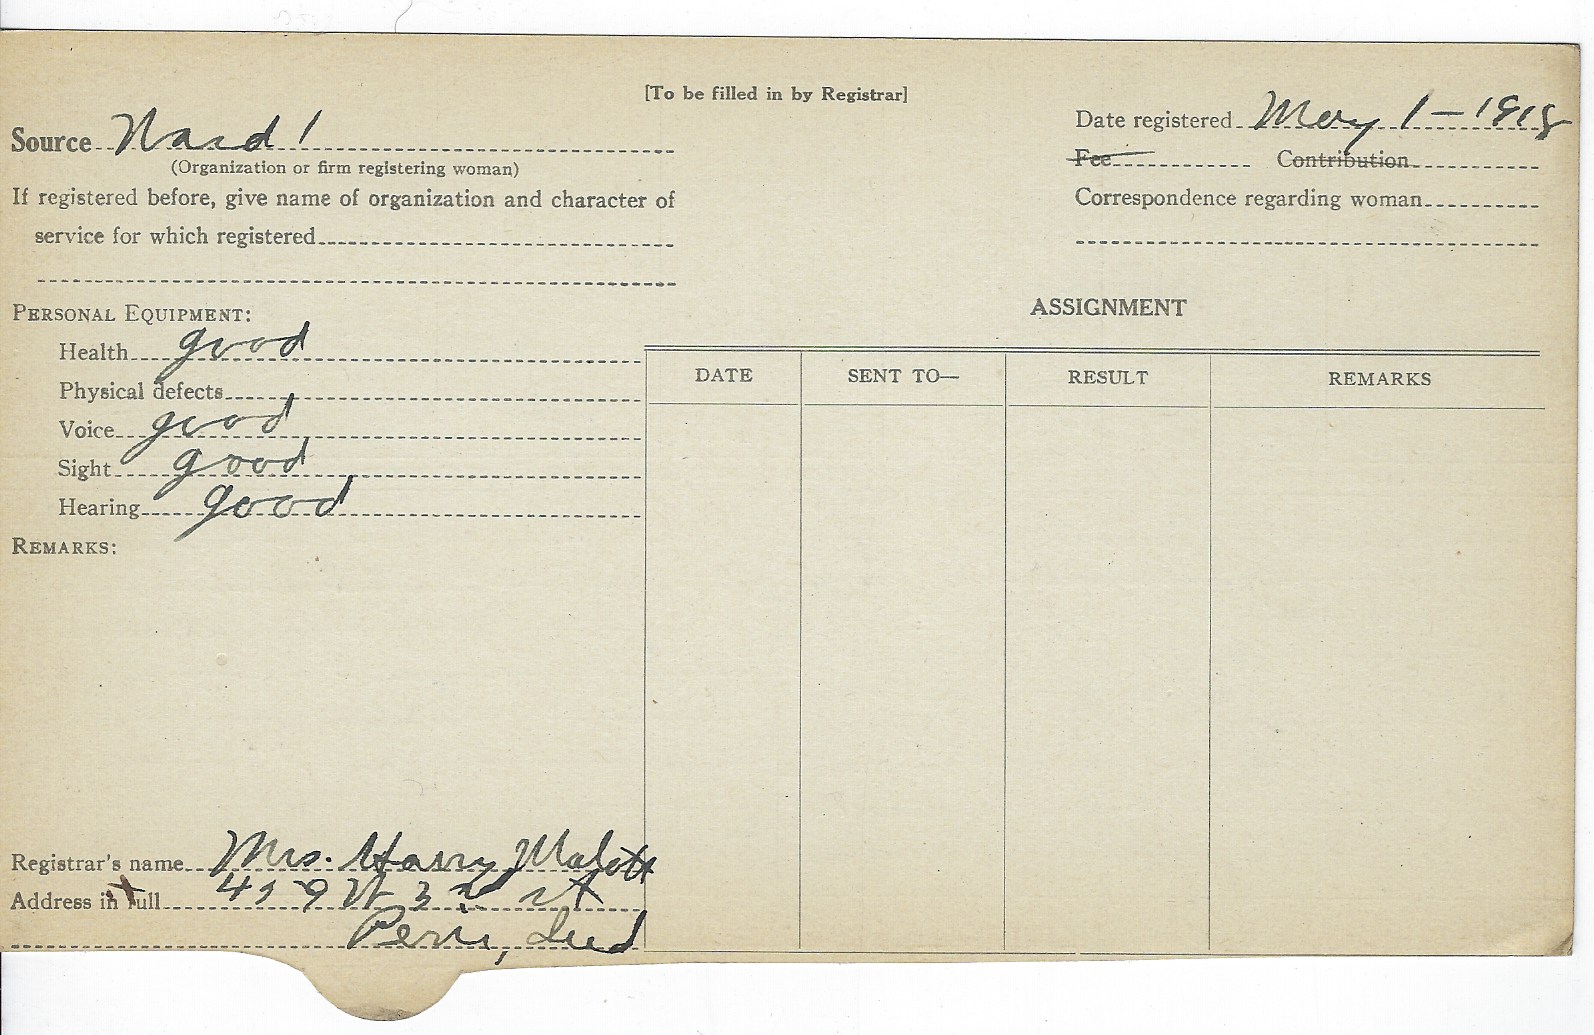 [To be filled in by Registrar]
Source Ward 1
(Organization or firm registering woman)
If registered before, give name of organization and character of
service for which registered
Date registered May 1-1918
Fee Contribution
Correspondence regarding woman
PERSONAL EQUIPMENT:
Health good
Physical defects
Voice good
Sight good
Hearing good
REMARKS:
ASSIGNMENT
DATE SENT TO— RESULT REMARKS
Registrar's name Mrs. Harry Malott
Address in full W 3rd St
Peru, Ind